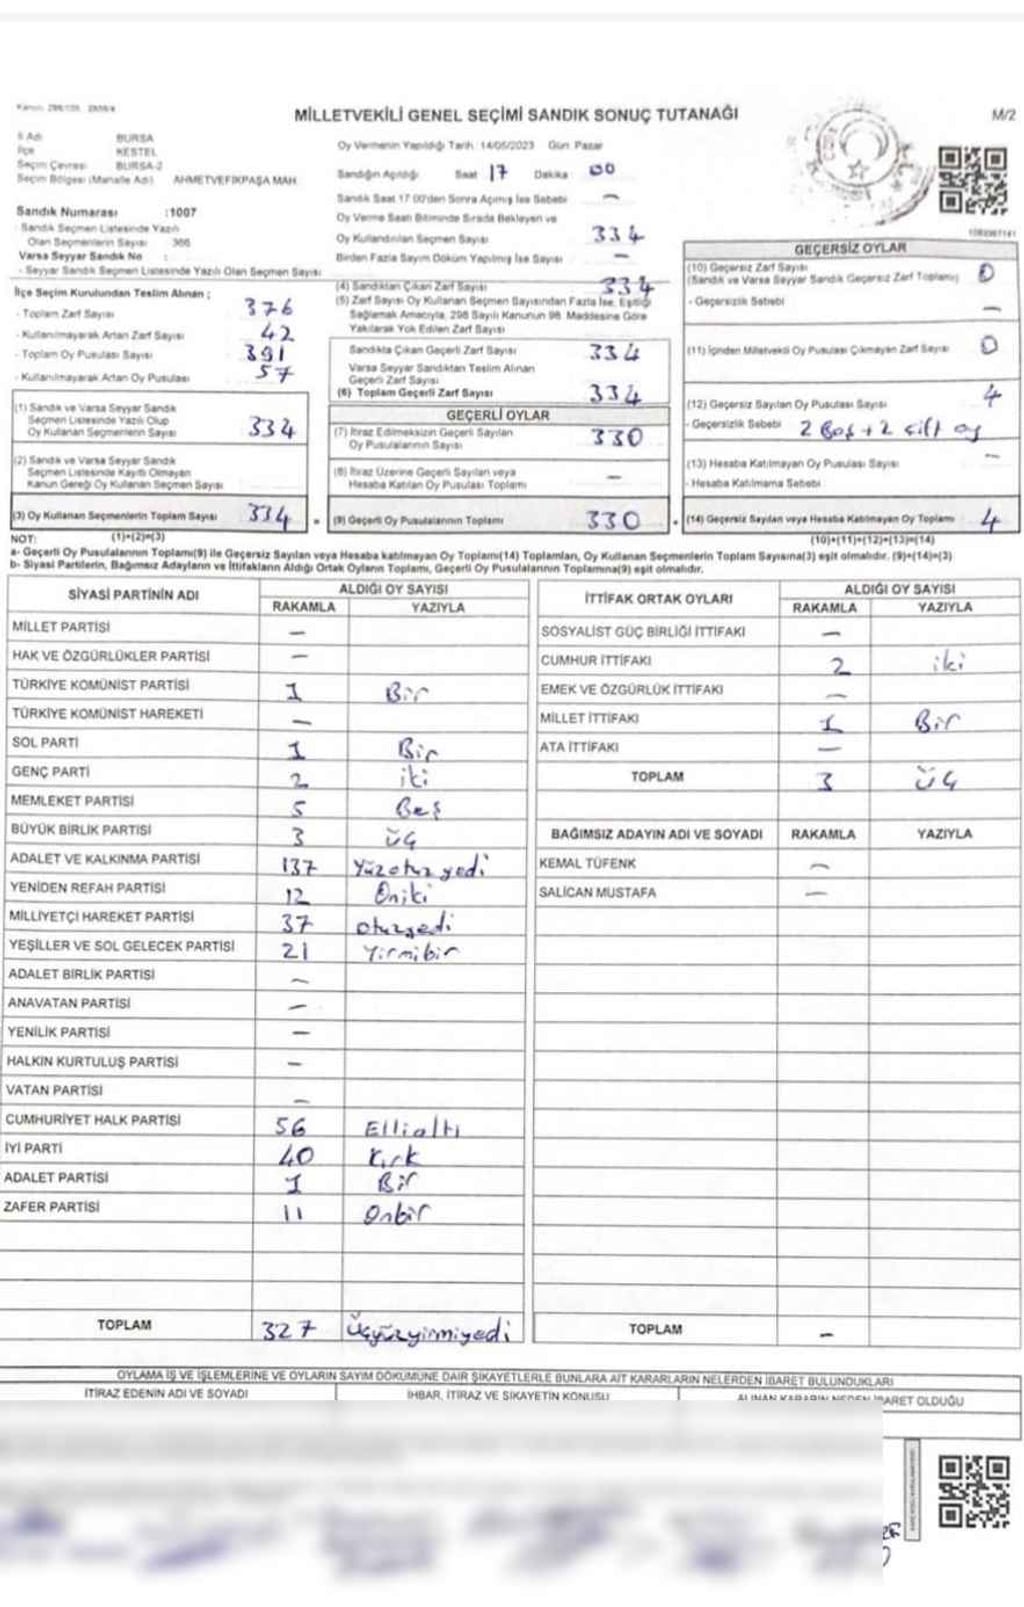 MİLLETVEKİLİ GENEL SEÇİMİ SANDIK SONUÇ TUTANAĞI
M/2
İl Adı BURSA
İlçe KESTEL
Seçim Çevresi BURSA-2
Seçim Bölgesi (Mahalle Adı) AHMETVEFİKPAŞA MAH.
Sandık Numarası :1007
Sandık Seçmen Listesinde Yazılı
Olan Seçmenlerin Sayısı 366
Varsa Seyyar Sandık No :
- Seyyar Sandık Seçmen Listesinde Yazılı Olan Seçmen Sayısı
İlçe Seçim Kurulundan Teslim Alınan ;
- Toplam Zarf Sayısı 376
- Kullanılmayarak Artan Zarf Sayısı 42
- Toplam Oy Pusulası Sayısı 391
- Kullanılmayarak Artan Oy Pusulası 57
(1) Sandık ve Varsa Seyyar Sandık
Seçmen Listesinde Yazılı Olup
Oy Kullanan Seçmenlerin Sayısı 334
(2) Sandık ve Varsa Seyyar Sandık
Seçmen Listesinde Kayıtlı Olmayan
Kanun Gereği Oy Kullanan Seçmen Sayısı
(3) Oy Kullanan Seçmenlerin Toplam Sayısı 334
Oy Vermenin Yapıldığı Tarih : 14/05/2023 Gün: Pazar
Sandığın Açıldığı Saat 17 Dakika : 00
Sandık Saat 17:00'den Sonra Açılmış İse Sebebi —
Oy Verme Saati Bitiminde Sırada Bekleyen ve
Oy Kullandırılan Seçmen Sayısı 334
Birden Fazla Sayım Döküm Yapılmış İse Sayısı —
(4) Sandıktan Çıkan Zarf Sayısı 334
(5) Zarf Sayısı Oy Kullanan Seçmen Sayısından Fazla İse, Eşitliği
Sağlamak Amacıyla, 298 Sayılı Kanunun 98. Maddesine Göre
Yakılarak Yok Edilen Zarf Sayısı
Sandıkta Çıkan Geçerli Zarf Sayısı 334
Varsa Seyyar Sandıktan Teslim Alınan
Geçerli Zarf Sayısı
(6) Toplam Geçerli Zarf Sayısı 334
GEÇERLİ OYLAR
(7) İtiraz Edilmeksizin Geçerli Sayılan
Oy Pusulalarının Sayısı 330
(8) İtiraz Üzerine Geçerli Sayılan veya
Hesaba Katılan Oy Pusulası Toplamı —
(9) Geçerli Oy Pusulalarının Toplamı 330
GEÇERSİZ OYLAR
(10) Geçersiz Zarf Sayısı 0
(Sandık ve Varsa Seyyar Sandık Geçersiz Zarf Toplamı)
- Geçersizlik Sebebi —
(11) İçinden Milletvekili Oy Pusulası Çıkmayan Zarf Sayısı 0
(12) Geçersiz Sayılan Oy Pusulası Sayısı 4
- Geçersizlik Sebebi 2 Boş + 2 çift oy
(13) Hesaba Katılmayan Oy Pusulası Sayısı —
- Hesaba Katılmama Sebebi
(14) Geçersiz Sayılan veya Hesaba Katılmayan Oy Toplamı 4
NOT: (1)+(2)=(3) (10)+(11)+(12)+(13)=(14)
a- Geçerli Oy Pusulalarının Toplamı(9) ile Geçersiz Sayılan veya Hesaba katılmayan Oy Toplamı(14) Toplamları, Oy Kullanan Seçmenlerin Toplam Sayısına(3) eşit olmalıdır. (9)+(14)=(3)
b- Siyasi Partilerin, Bağımsız Adayların ve İttifakların Aldığı Ortak Oyların Toplamı, Geçerli Oy Pusulalarının Toplamına(9) eşit olmalıdır.
SİYASİ PARTİNİN ADI ALDIĞI OY SAYISI
RAKAMLA YAZIYLA
MİLLET PARTİSİ —
HAK VE ÖZGÜRLÜKLER PARTİSİ —
TÜRKİYE KOMÜNİST PARTİSİ 1 Bir
TÜRKİYE KOMÜNİST HAREKETİ —
SOL PARTİ 1 Bir
GENÇ PARTİ 2 iki
MEMLEKET PARTİSİ 5 Beş
BÜYÜK BİRLİK PARTİSİ 3 üç
ADALET VE KALKINMA PARTİSİ 137 Yüzotuzyedi
YENİDEN REFAH PARTİSİ 12 Oniki
MİLLİYETÇİ HAREKET PARTİSİ 37 otuzyedi
YEŞİLLER VE SOL GELECEK PARTİSİ 21 Yirmibir
ADALET BİRLİK PARTİSİ —
ANAVATAN PARTİSİ —
YENİLİK PARTİSİ —
HALKIN KURTULUŞ PARTİSİ —
VATAN PARTİSİ —
CUMHURİYET HALK PARTİSİ 56 Ellialtı
İYİ PARTİ 40 Kırk
ADALET PARTİSİ 1 Bir
ZAFER PARTİSİ 11 Onbir
TOPLAM 327 Üçyüzyirmiyedi
İTTİFAK ORTAK OYLARI ALDIĞI OY SAYISI
RAKAMLA YAZIYLA
SOSYALİST GÜÇ BİRLİĞİ İTTİFAKI —
CUMHUR İTTİFAKI 2 iki
EMEK VE ÖZGÜRLÜK İTTİFAKI —
MİLLET İTTİFAKI 1 Bir
ATA İTTİFAKI —
TOPLAM 3 üç
BAĞIMSIZ ADAYIN ADI VE SOYADI RAKAMLA YAZIYLA
KEMAL TÜFENK —
SALİCAN MUSTAFA —
TOPLAM —
OYLAMA İŞ VE İŞLEMLERİNE VE OYLARIN SAYIM DÖKÜMÜNE DAİR ŞİKAYETLERLE BUNLARA AİT KARARLARIN NELERDEN İBARET BULUNDUKLARI
İTİRAZ EDENİN ADI VE SOYADI İHBAR, İTİRAZ VE ŞİKAYETİN KONUSU ALINAN KARARIN NEDEN İBARET OLDUĞU